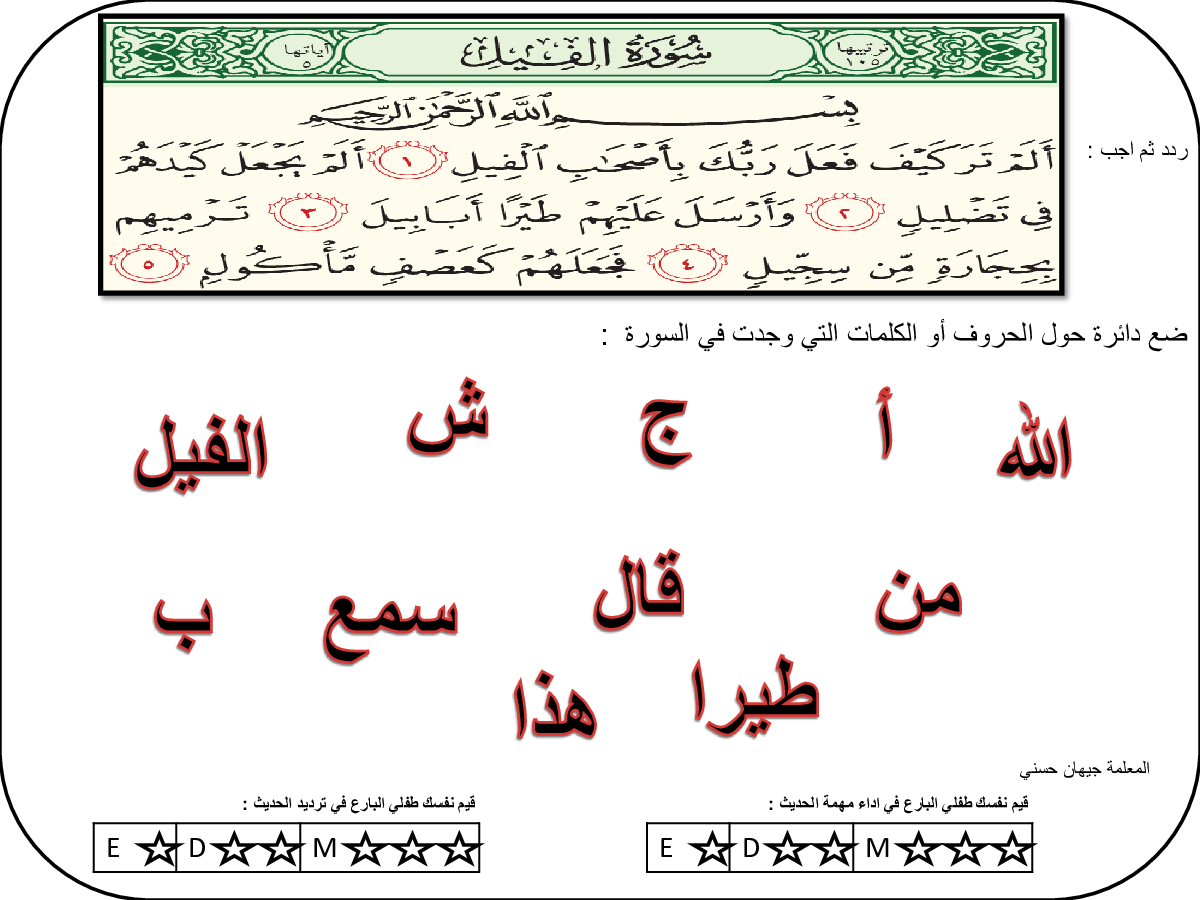 ترتيبها ١٠٥ سُورَةُ الفِيلِ آياتها ٥
بِسْمِ اللَّهِ الرَّحْمَٰنِ الرَّحِيمِ
ردد ثم اجب :
أَلَمْ تَرَ كَيْفَ فَعَلَ رَبُّكَ بِأَصْحَابِ الْفِيلِ ١ أَلَمْ يَجْعَلْ كَيْدَهُمْ
فِي تَضْلِيلٍ ٢ وَأَرْسَلَ عَلَيْهِمْ طَيْرًا أَبَابِيلَ ٣ تَرْمِيهِم
بِحِجَارَةٍ مِّن سِجِّيلٍ ٤ فَجَعَلَهُمْ كَعَصْفٍ مَّأْكُولٍ ٥
ضع دائرة حول الحروف أو الكلمات التي وجدت في السورة :
الله أ ج ش الفيل
من قال سمع ب
طيرا هذا
المعلمة جيهان حسني
قيم نفسك طفلي البارع في اداء مهمة الحديث :
E D M
قيم نفسك طفلي البارع في ترديد الحديث :
E D M